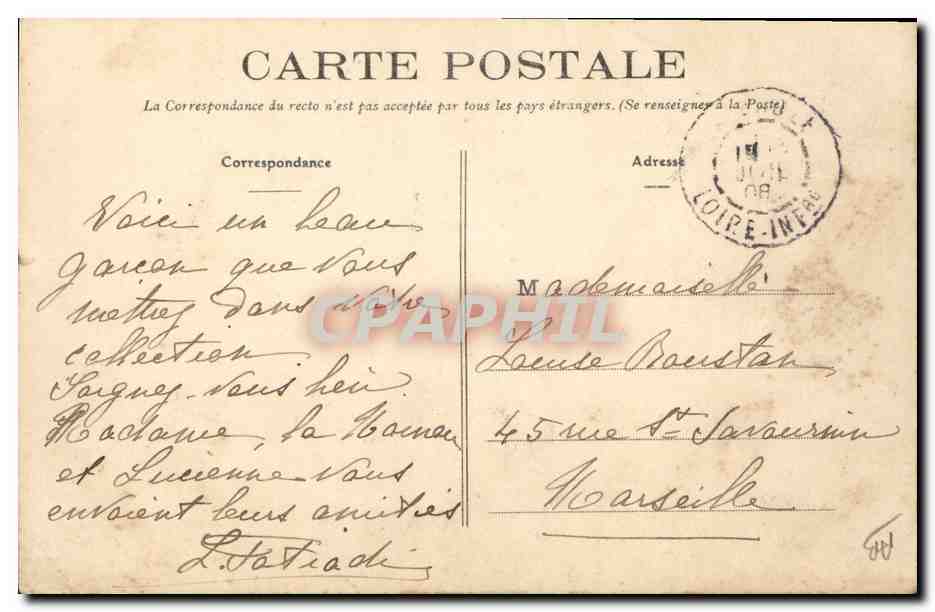 CARTE POSTALE
La Correspondance du recto n'est pas acceptée par tous les pays étrangers. (Se renseigner à la Poste)
Correspondance
Voici un beau
garçon que vous
mettrez dans votre
collection
Soignez-vous bein
Madame, la
et Lucienne vous
envoient leurs amitiés
Adresse
LOIRE-INFRE
08
Mademoiselle
Louise Boustan
45 rue St Savournin
Marseille
CPAPHIL